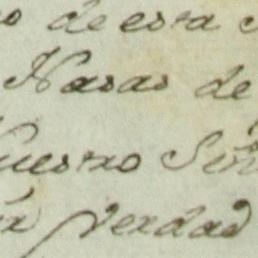 de esta
Nasas de
uestro Señ
Verdad